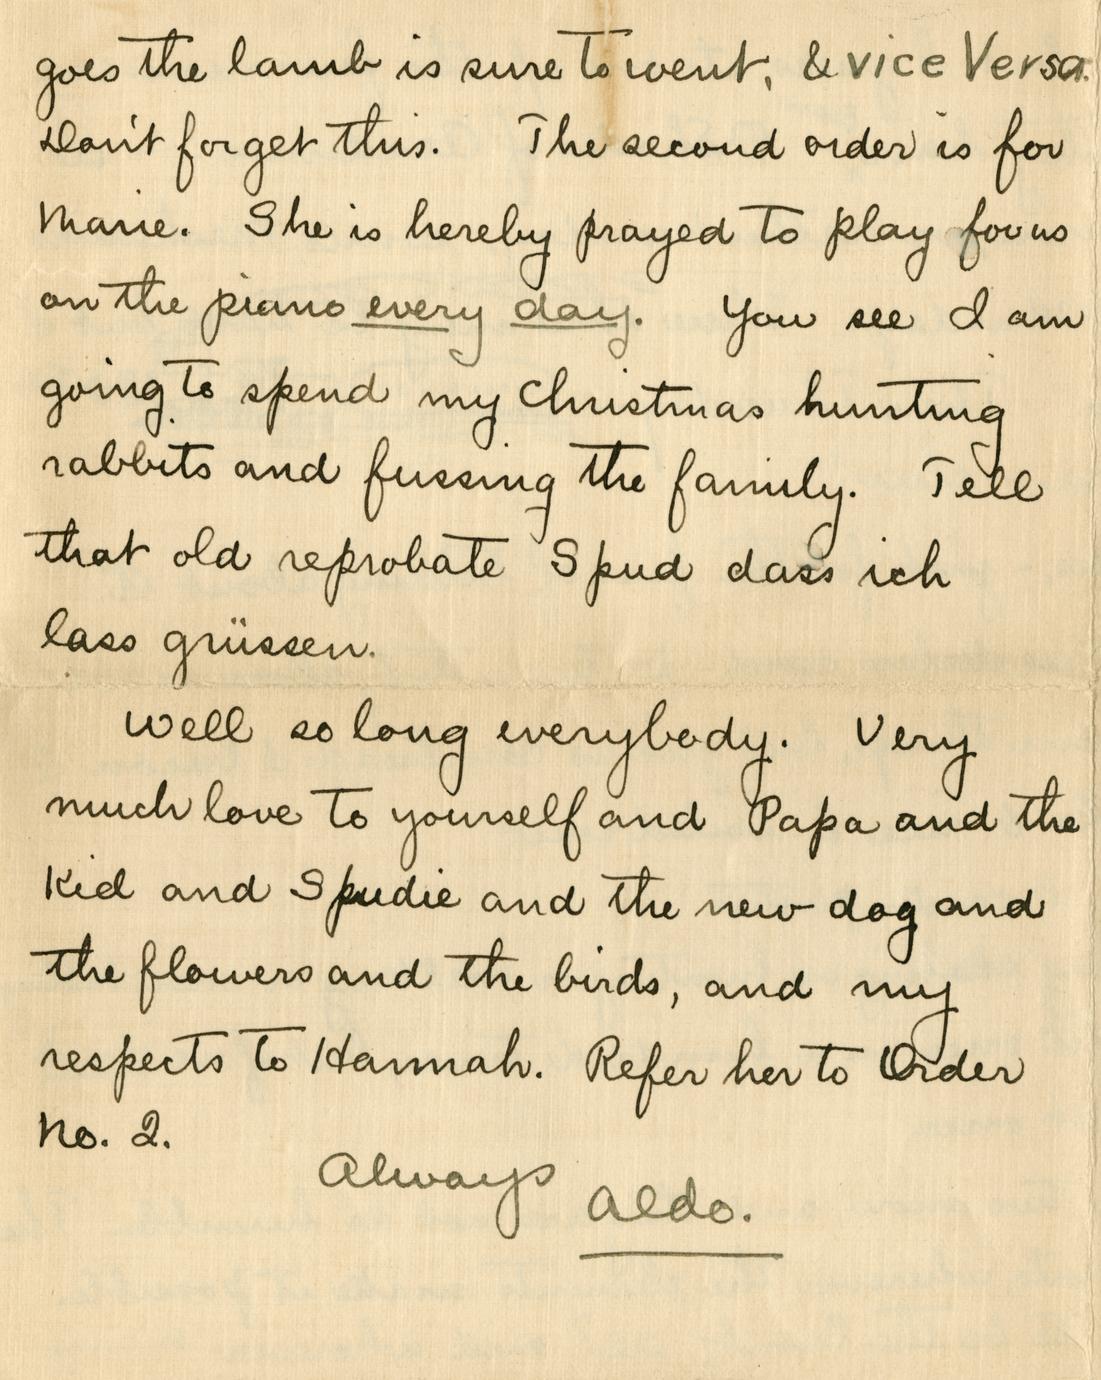 goes the lamb is sure to went, & vice Versa.
Don't forget this. The second order is for
Marie. She is hereby prayed to play for us
on the piano every day. You see I am
going to spend my Christmas hunting
rabbits and fussing the family. Tell
that old reprobate Spud dass ich
lass grüssen.
Well so long everybody. Very
much love to yourself and Papa and the
Kid and Spudie and the new dog and
the flowers and the birds, and my
respects to Hannah. Refer her to Order
No. 2.
Always
Aldo.